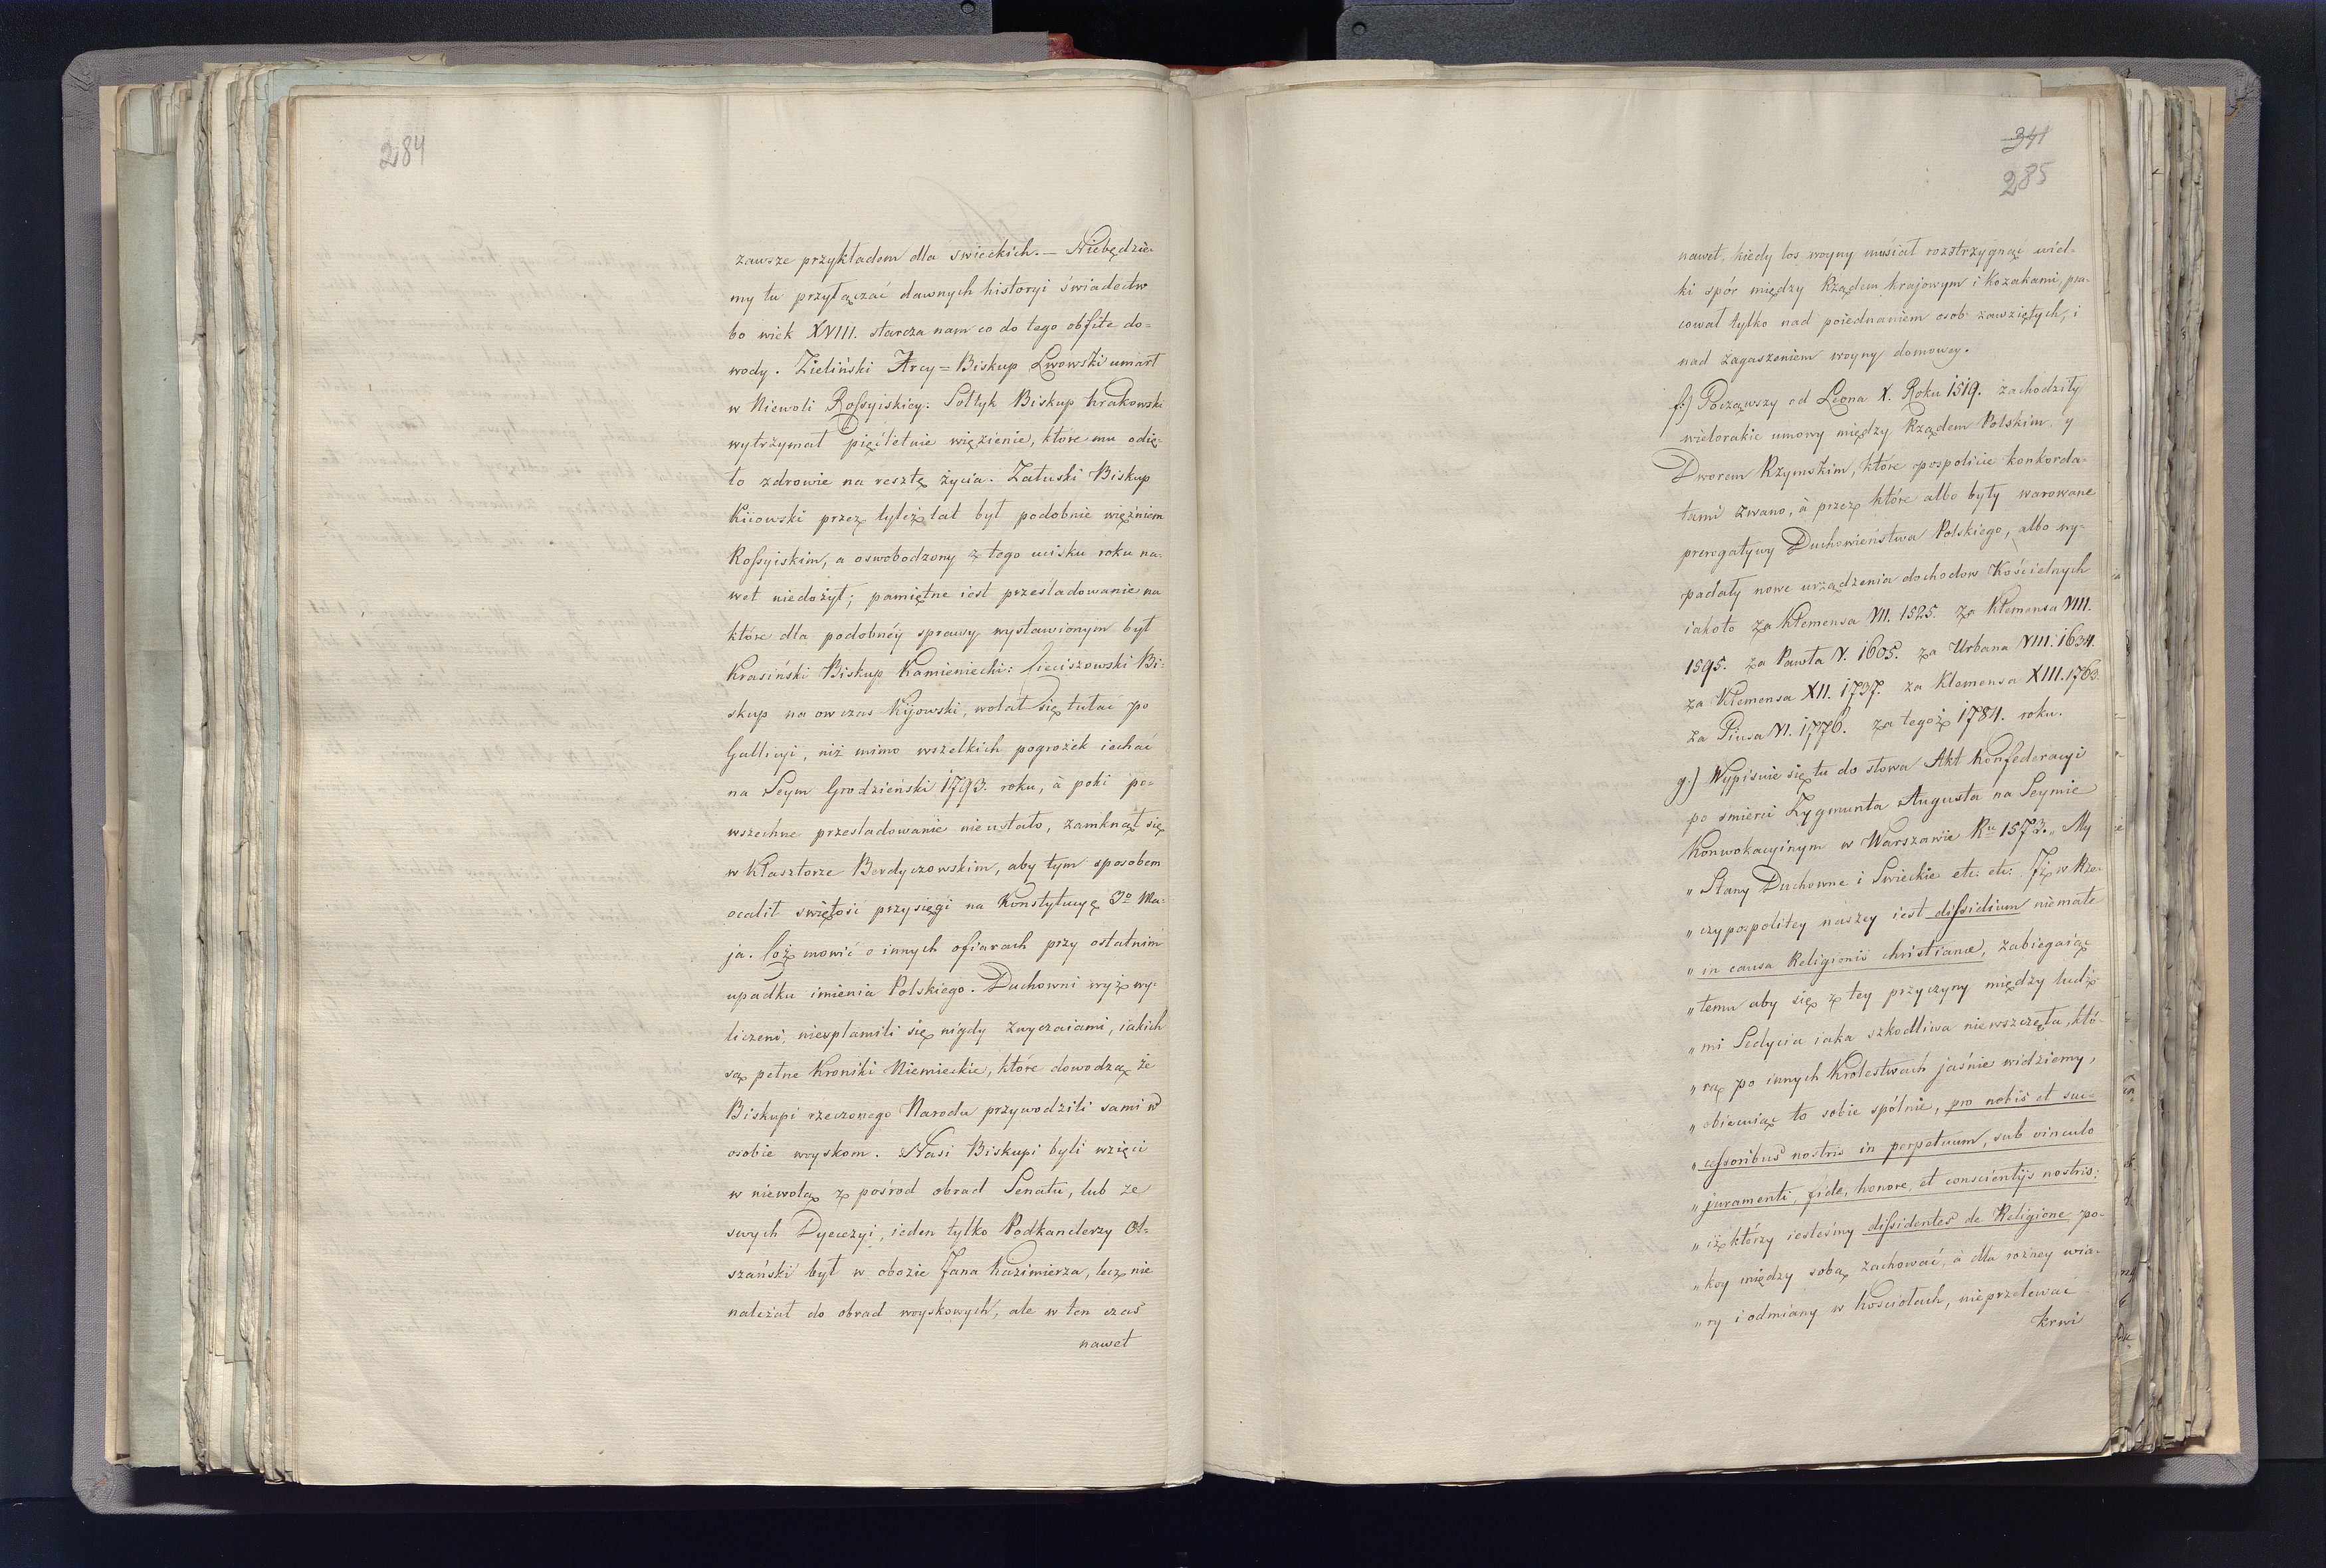 284
zawsze przykładem dla swieckich. — Niebędzie-
my tu przyłączać dawnych historyi świadectw
bo wiek XVIII. starcza nam co do tego obfite do=
wody. Zieliński Arcy=Biskup Lwowski umarł
w Niewoli Rossyiskiey. Sołtyk Biskup krakowski
wytrzymał pięćletnie więzienie, które mu odię-
ło zdrowie na resztę życia. Załuski Biskup
Kiiowski przez tyleż lat był podobnie więźniem
Rossyiskim, a oswobodzony z tego ucisku roku na-
wet niedożył; pamiętne iest prześladowanie na
które dla podobnéy sprawy wystawionym był
Krasiński Biskup Kamieniecki: Cieciszowski Bi-
skup na ow czas Kijowski, wolał się tułać po
Gallicyi, niż mimo wszelkich pogrożek iechać
na Seym Grodzieński 1793. roku, à poki po=
wszechne przesladowanie nieustało, zamknął się
w Klasztorze Berdyczowskim, aby tym sposobem
ocalił swiętość przysięgi na Konstytucyę 3º Ma-
ja. Cóż mowić o innych ofiarach przy ostatnim
upadku imienia Polskiego. Duchowni wyż wy-
liczeni, niesplamili się nigdy zwyczaiami, iakich
są pełne Kroniki Niemieckie, które dowodzą że
Biskupi rzeczonego Narodu przywodzili sami w
osobie woyskom. Nasi Biskupi byli wzięci
w niewolą z pośrod obrad Senatu, lub ze
swych Dyecezyi, ieden tylko Podkanclerzy Ol-
szański był w obozie Jana Kazimierza, lecz nie
należał do obrad woyskowych, ale w ten czas
nawet
341
285
nawet, kiedy los woyny musiał rozstrzygnąć wiel-
ki spór między Rządem krajowym i Kozakami, pra-
cował tylko nad poiednaniem osob zawziętych, i
nad zagaszeniem woyny domowey.
f.) Począwszy od Leona X. Roku 1519. zachodziły
wielorakie umowy między Rządem Polskim, y
Dworem Rzymskim, które pospolicie konkorda-
tami zwano, à przez które albo były warowane
prerogatywy Duchowieństwa Polskiego, albo wy-
padały nowe urządzenia dochodow Kościelnych
iakoto za Klemensa VII. 1525. za Klemensa VIII.
1595. za Pawła V. 1605. za Urbana VIII. 1634.
za Klemensa XII. 1737. za Klemensa XIII. 1763.
za Piusa VI. 1776. za tegoż 1784. roku.
g.) Wypisuie się tu do słowa Akt Konfederacyi
po śmierci Zygmunta Augusta na Seymie
Konwokacyjnym w Warszawie Ru 1573. „ My
„ Stany Duchowne i Swieckie etc: etc: Iż w Rze-
„ czypospolitey naszey iest dissidium niemałe
„ in causa Religionis christianæ, zabiegaiąc
„ temu aby się z tey przyczyny między ludź-
„ mi Sedycia iaka szkodliwa niewszczęła, któ-
„ rą po innych Krolestwach jaśnie widziemy,
„ obiecuiąc to sobie spólnie, pro nobis et suc-
„ cessoribus nostris in perpetuum, sub vinculo
„ juramenti, fide, honore, et conscientijs nostris,
„ iż którzy iesteśmy dissidentes de Religione, po-
„ koy między sobą zachować, à dla rożney wia-
„ ry i odmiany w Kosciołach, nieprzelewać
krwi